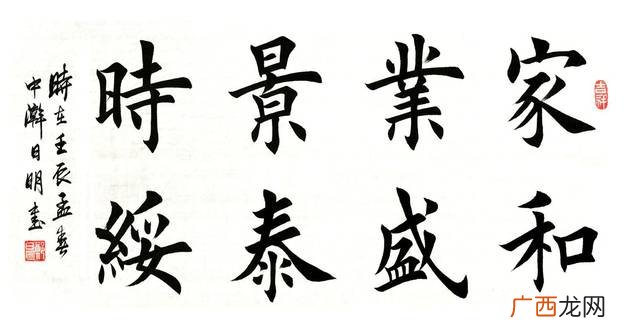 吉祥
家和
業盛
景泰
時綏
時在壬辰孟春
中澣日明書
广西龙网